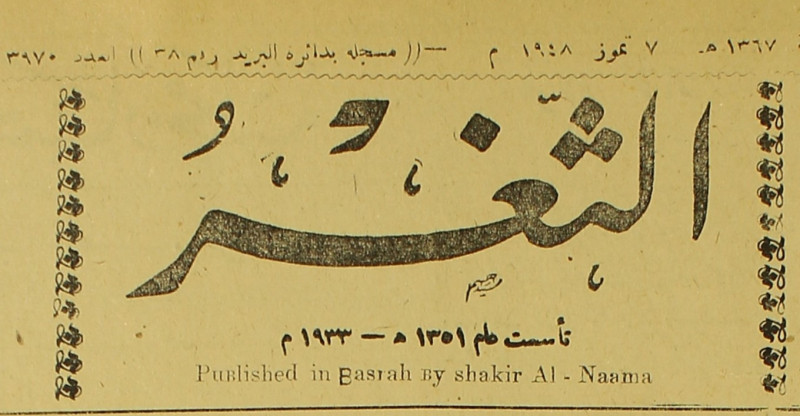 ١٣٦٧ هـ ٧ تموز ١٩٤٨ م —(( مسجله بدائرة البريد رقم ٣٨ )) العدد ٣٩٧٠
الثَّغْرُ
تأسست عام ١٣٥١ ه — ١٩٣٣ م
Published in Basrah By shakir Al - Naama